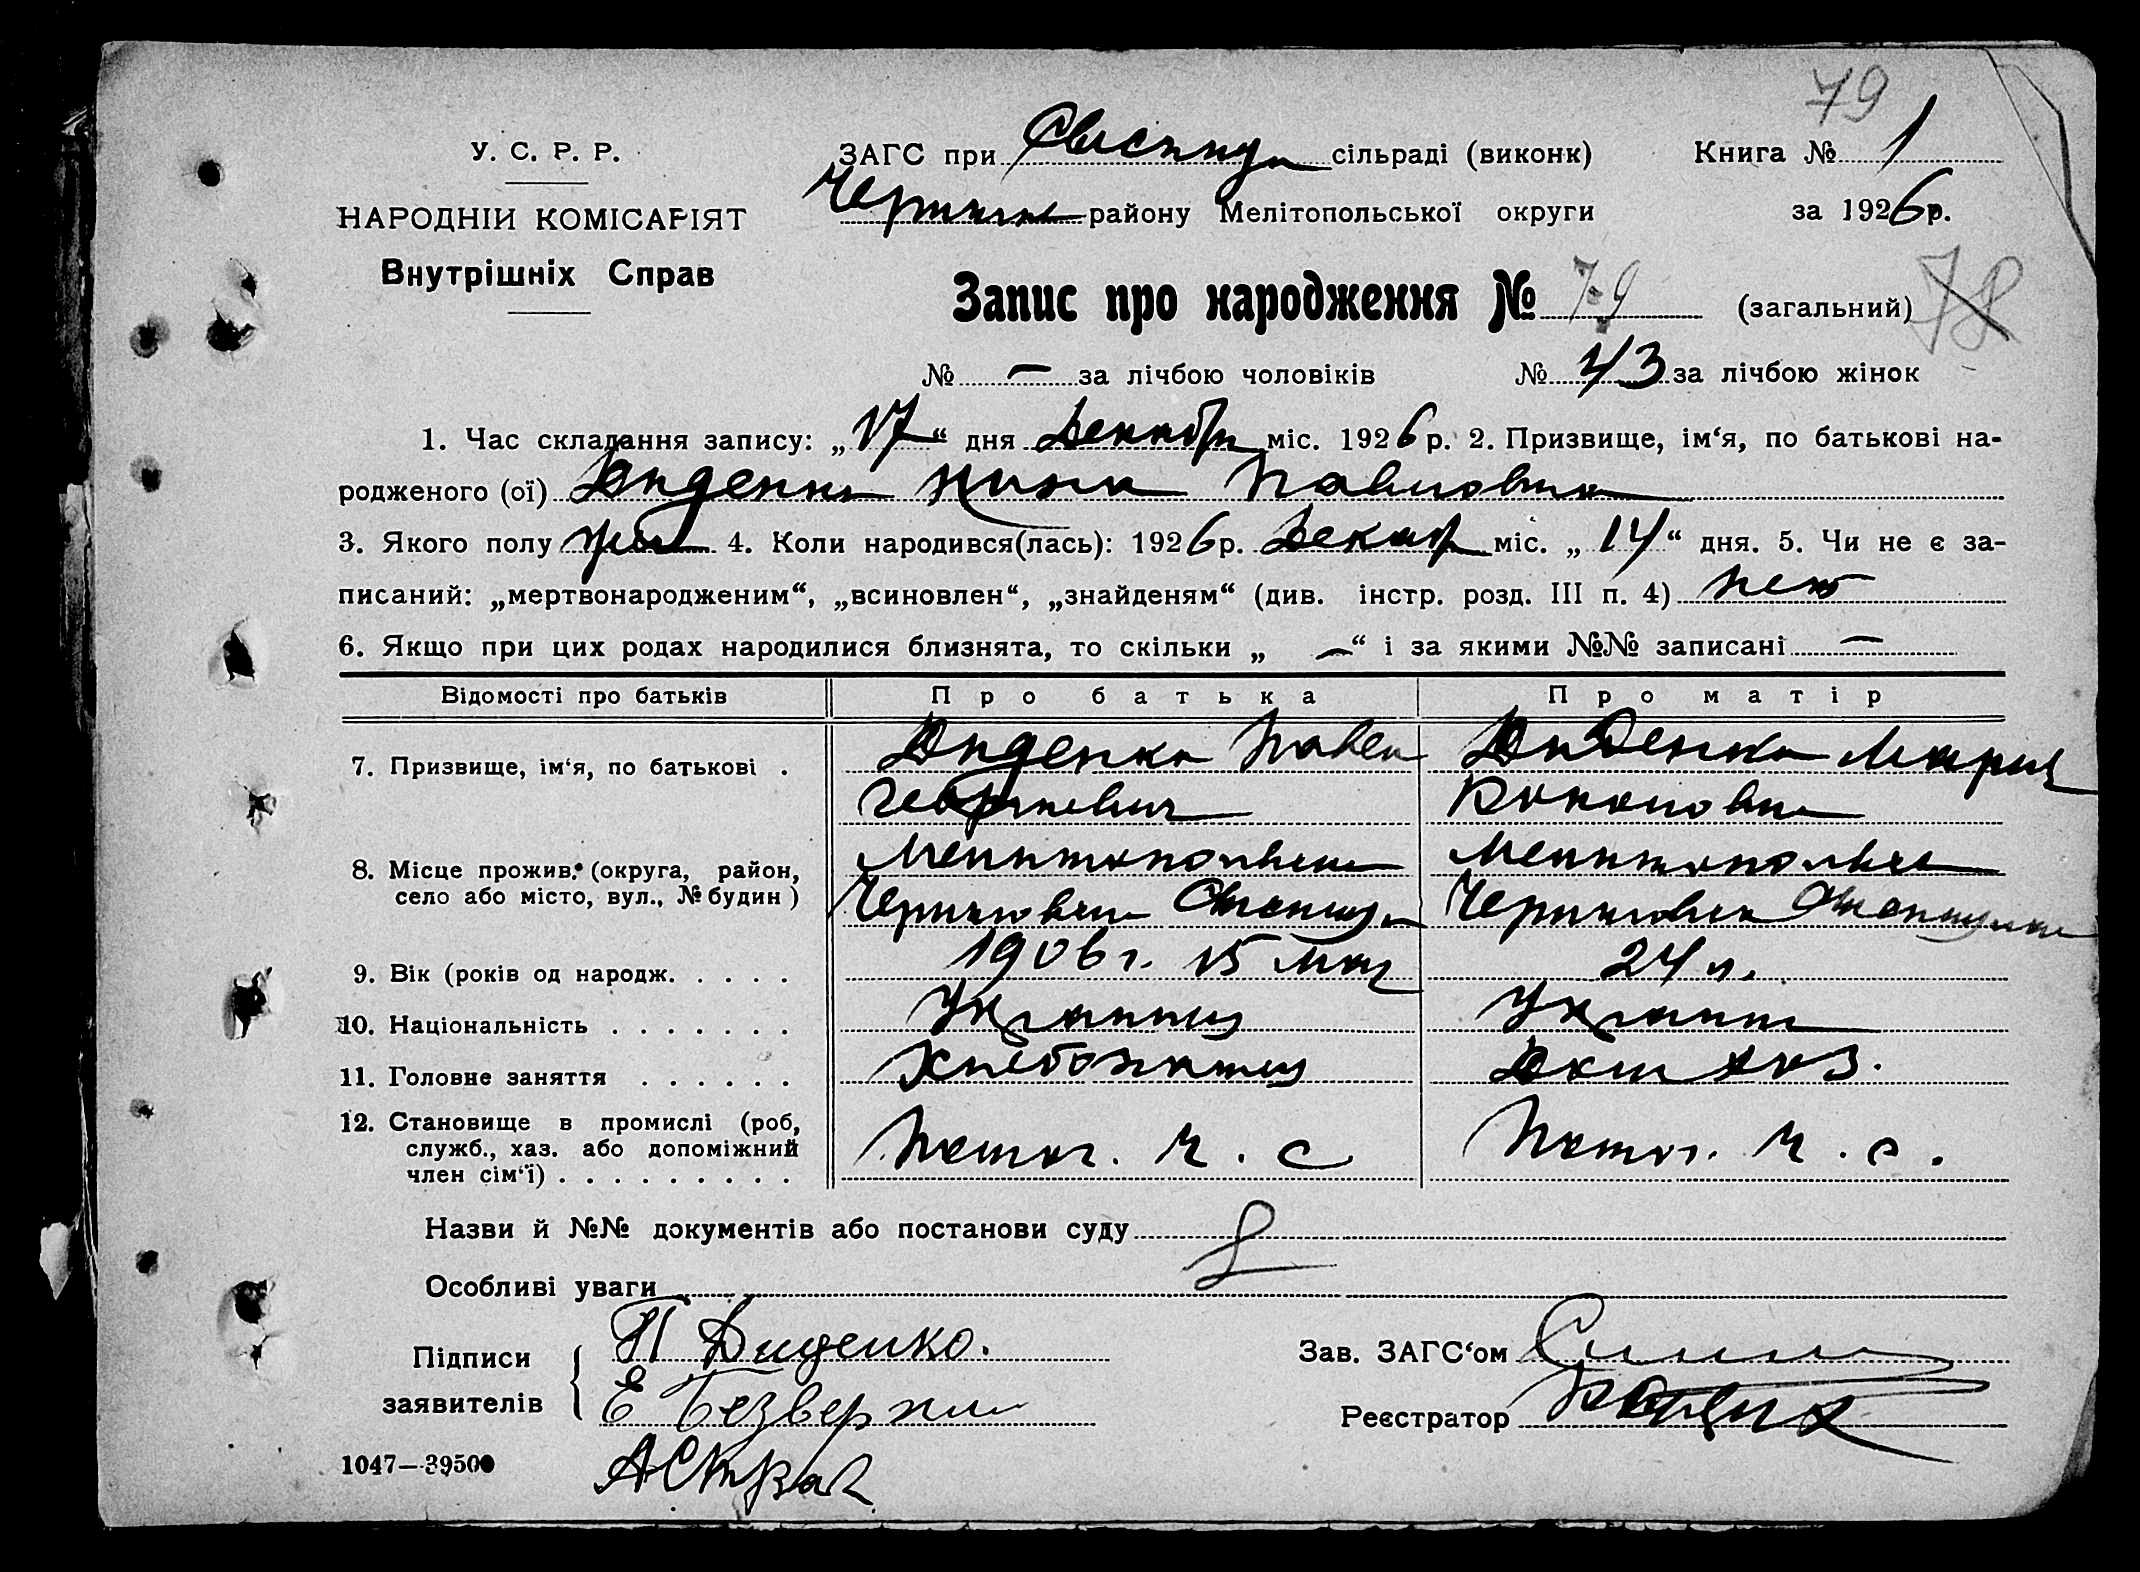 79
У. С. Р. Р.
НАРОДНІЙ КОМІСАРІЯТ
Внутрішніх Справ
ЗАГС при сільраді (виконк) Книга № 1
району Мелітопольської округи за 1926р.
Запис про народження № 79 (загальний) 78
№ — за лічбою чоловіків № 43 за лічбою жінок
1. Час складання запису: „17“ дня Декабр міс. 1926р. 2. Призвище, ім‘я, по батькові на-
родженого (ої) Диденко Нина Павловна
3. Якого полу жен 4. Коли народився(лась): 1926р. Декабр міс. „14“ дня. 5. Чи не є за-
писаний: „мертвонародженим“, „всиновлен“, „знайденям“ (див. інстр. розд. III п. 4) нет
6. Якщо при цих родах народилися близнята, то скільки „ —“ і за якими №№ записані —
Відомості про батьків Про батька Про матір
7. Призвище, ім‘я, по батькові . Диденко Павел Диденко Мария
Георгиевич Кононовна
8. Місце прожив. (округа, район, село або місто, вул., № будин ) Мелитопольск Мелитопольск
Черниговск Черниговск
9. Вік (років од народж. . . . . 1906 г. 15 Мая 24 л.
10. Національність . . . . . . . Украинец Украин
11. Головне заняття . . . . . . Хлебопашец Дом хоз.
12. Становище в промислі (роб, служб., хаз. або допоміжний член сім‘ї) . . . . . . . . . Помог. ч. с Помог. ч. с.
Назви й №№ документів або постанови суду
Особливі уваги
Підписи заявителів { П Диденко. Зав. ЗАГС‘ом
Е Безверхи Реєстратор
1047—39500